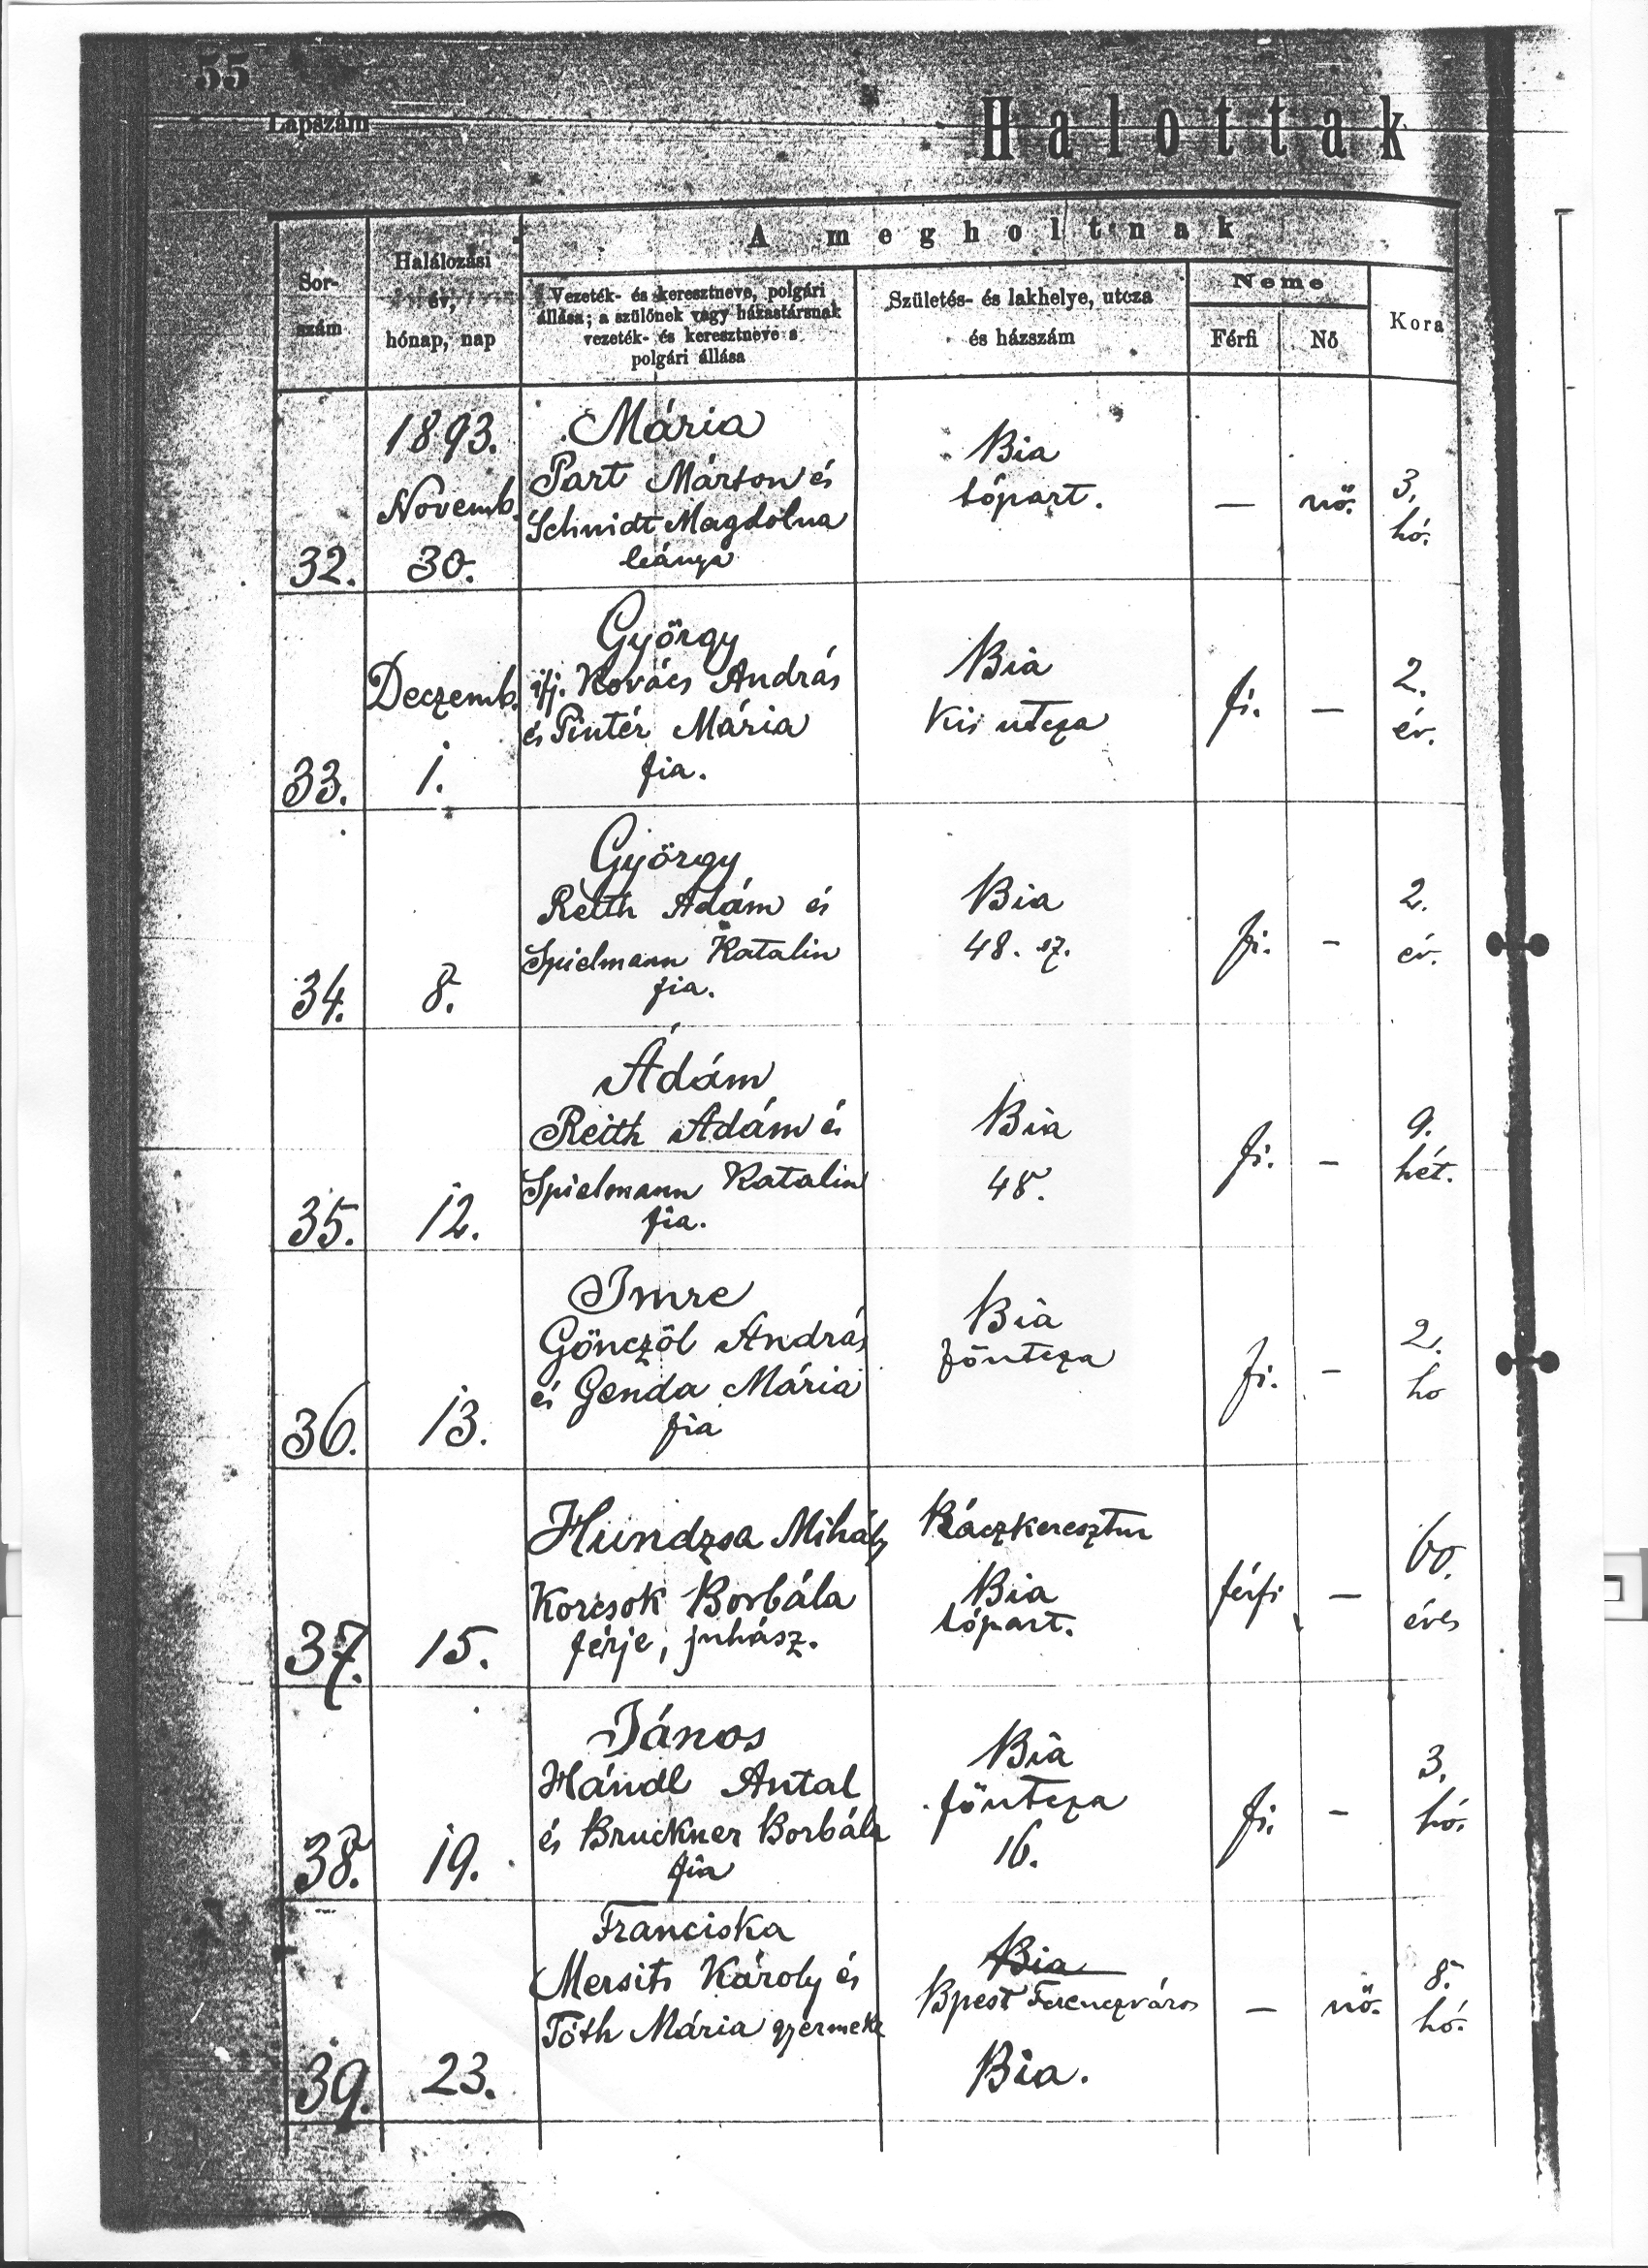 55
Lapszám
Halottak
A megholtnak
Sor-
szám
Halálozási
év,
hónap, nap
Vezeték- és keresztneve, polgári
állása; a szülőnek vagy házastársnak
vezeték- és keresztneve s
polgári állása
Születés- és lakhelye, utcza
és házszám
Neme
Férfi
Nő
Kora
32.
1893.
Novemb.
30.
Mária
Part Márton és
Schmidt Magdolna
leánya
Bia
tópart.
—
nő.
3.
hó.
33.
Deczemb.
1.
György
ifj. Kovács András
és Pintér Mária
fia.
Bia
Kis utcza
fi.
—
2.
év.
34.
8.
György
Reith Ádám és
Spielmann Katalin
fia.
Bia
48. sz.
fi.
–
2.
év.
35.
12.
Ádám
Reith Ádám és
Spielmann Katalin
fia.
Bia
48.
fi.
–
9.
hét.
36.
13.
Imre
Gönczöl András
és Genda Mária
fia
Bia
főutcza
fi.
–
2.
ho
37.
15.
Hundzsa Mihály
Korcsok Borbála
férje, juhász.
Ráczkeresztur
Bia
tópart.
férfi
—
60.
éves
38.
19.
János
Hándl Antal
és Bruckner Borbála
fia
Bia
főutcza
16.
fi.
–
3.
hó.
39.
23.
Franciska
Mersits Károly és
Tóth Mária gyermeke
Bia
Bpest Ferenczváros
Bia.
—
nő.
8.
hó.